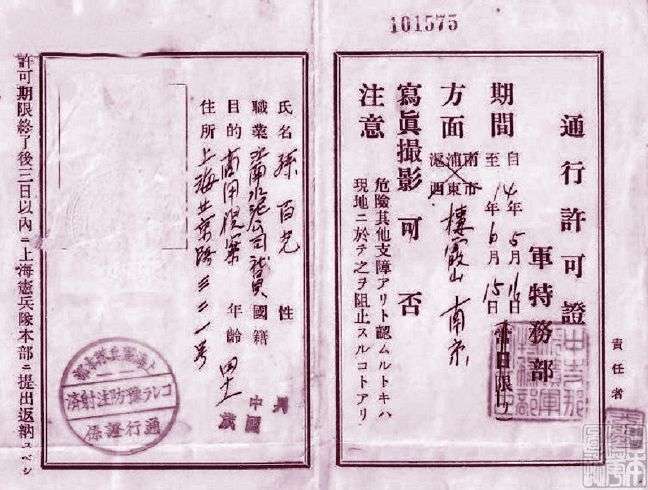 101575
通行許可證
軍特務部
期間
自14年5月16日
至 年6月15日
(當日限リ)
方面
南市
浦東
滬西
棲霞山 南京
寫眞撮影 可 否
注意
危險其他支障アリト認ムルトキハ
現地ニ於テ之ヲ阻止スルコトアリ
責任者
氏名 孫百光 性 男
職業 水泥公司職員 國籍 中國
目的 商用視察 年齡 四十二歲
住所 上海北京路三二一号
コレラ豫防注射濟
通行證保
許可期限終了後三日以內ニ上海憲兵隊本部ニ提出返納スベシ